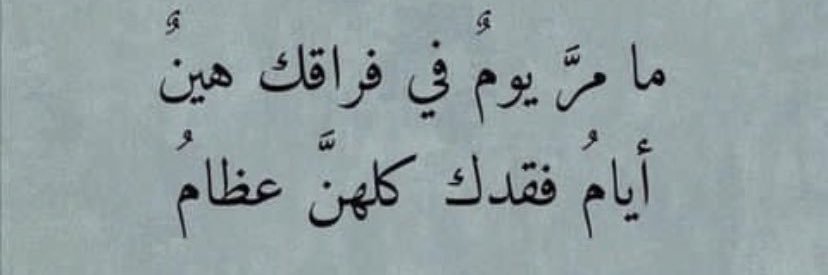 ما مرَّ يومٌ في فراقك هينٌ
أيامُ فقدك كلهنَّ عظامُ